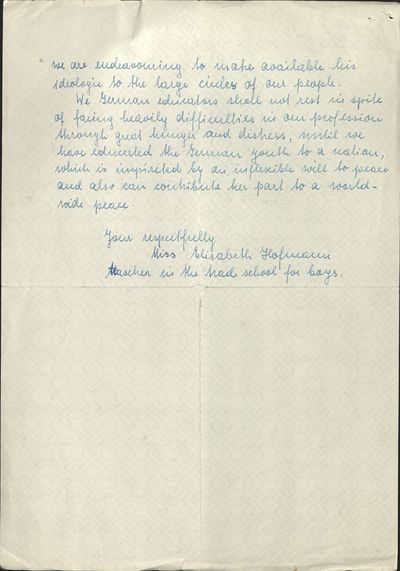 we are endeavouring to make available his
ideologie to the large circles of our people.
We German educators shall not rest in spite
of facing heavily difficulties in our profession
through great hunger and distress, until we
have educated the German youth to a nation,
which is inspirited by an inflexible will to peace
and also can contribute her part to a world-
wide peace.
Your respectfully
Miss Elisabeth Hofmann
teascher in the trade school for boys.